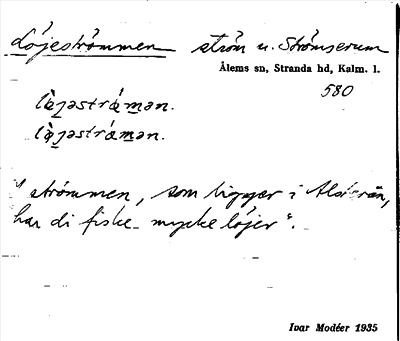 Löjeströmmen ström u. Strömserum
Ålems sn, Stranda hd, Kalm. l.
580
"strömmen, som ligger i Alsterån,
har di fiske mycke löjer".
Ivar Modéer 1935